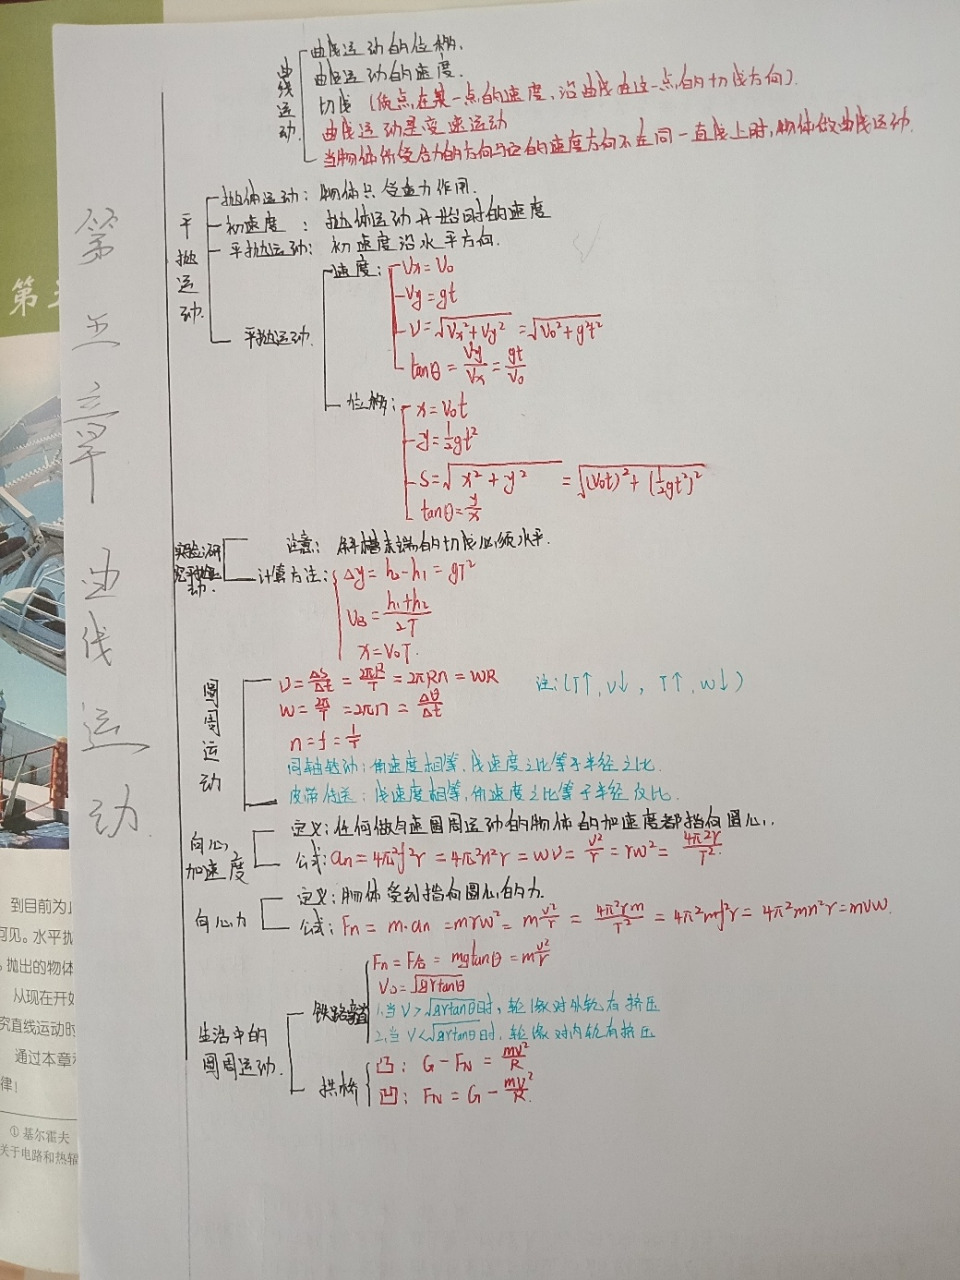 第五章 曲线运动
曲线运动
曲线运动的位移.
曲线运动的速度.
切线 (质点在某一点的速度,沿曲线在这一点的切线方向).
曲线运动是变速运动
当物体所受合力的方向与它的速度方向不在同一直线上时,物体做曲线运动.
平抛运动.
抛体运动: 物体只受重力作用.
初速度 : 抛体运动开始时的速度
平抛运动: 初速度沿水平方向.
平抛运动.
速度:
Vx=V₀
Vy=gt
V=√(Vx²+Vy²) =√(V₀²+g²t²)
tanθ = Vy/Vx = gt/V₀
位移:
x=V₀t
y=½gt²
S=√(x²+y²) =√((V₀t)²+(½gt²)²)
tanθ=y/x
实验:研究平抛运动.
注意: 斜槽末端的切线必须水平.
计算方法:
Δy= h₂-h₁ = gT²
VB = (h₁+h₂)/2T
x=V₀T.
圆周运动
V=ΔS/Δt = 2πR/T = 2πRn = WR 注:(T↑,V↓, T↑,W↓)
W=2π/T =2πn = Δθ/Δt
n=f=1/T
同轴转动:角速度相等,线速度之比等于半径之比.
皮带传送:线速度相等,角速度之比等于半径反比.
向心加速度
定义:任何做匀速圆周运动的物体的加速度都指向圆心.
公式:an=4π²f²r=4π²n²r=WV=V²/r=rW²=4π²r/T².
向心力
定义:物体受到指向圆心的力.
公式:Fn = m·an =mrW² = mV²/r = 4π²rm/T² = 4π²mf²r= 4π²mn²r=mVW.
生活中的圆周运动.
铁路弯道
Fn = F合 = mgtanθ = mV²/r
V₀=√(grtanθ)
1.当V>√(grtanθ)时,轮缘对外轮有挤压
2.当V<√(grtanθ)时,轮缘对内轮有挤压
拱桥
凸: G-FN = mV²/R
凹: FN=G-mV²/R.
第五
到目前为止
可见。水平抛
抛出的物体
从现在开始
究直线运动时
通过本章
律!
① 基尔霍夫
关于电路和热辐